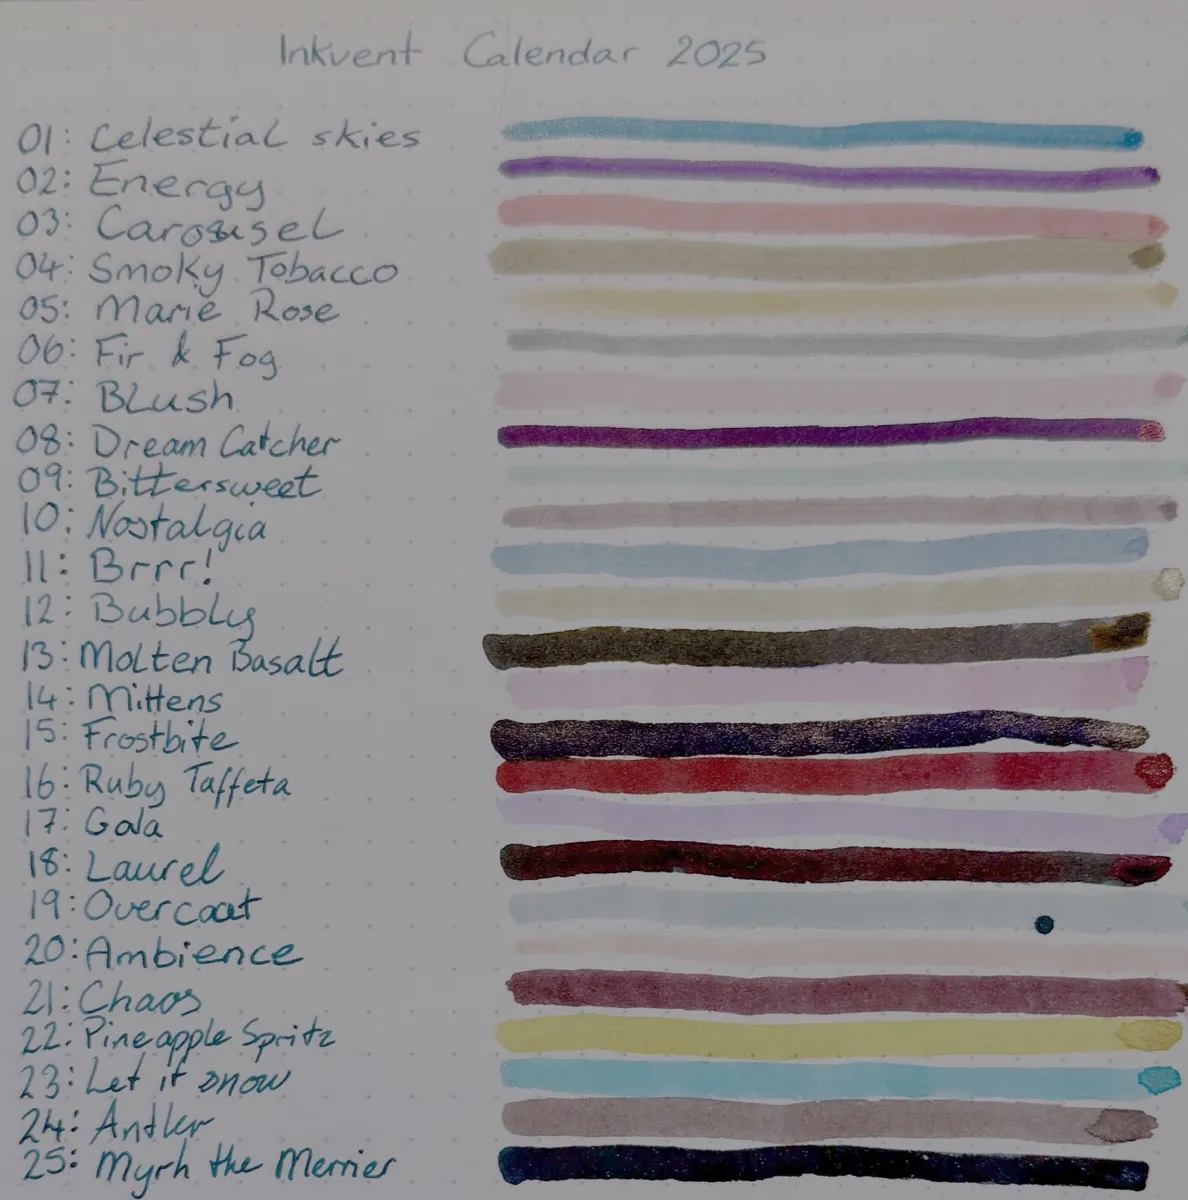 Inkvent Calendar 2025
01: Celestial skies
02: Energy
03: Carousel
04: Smoky Tobacco
05: Marie Rose
06: Fir & Fog
07: BLush
08: Dream Catcher
09: Bittersweet
10: Nostalgia
11: Brrr!
12: Bubbly
13: Molten Basalt
14: Mittens
15: Frostbite
16: Ruby Taffeta
17: Gala
18: Laurel
19: Overcoat
20: Ambience
21: Chaos
22: Pineapple Spritz
23: Let it snow
24: Antler
25: Myrh the Merrier